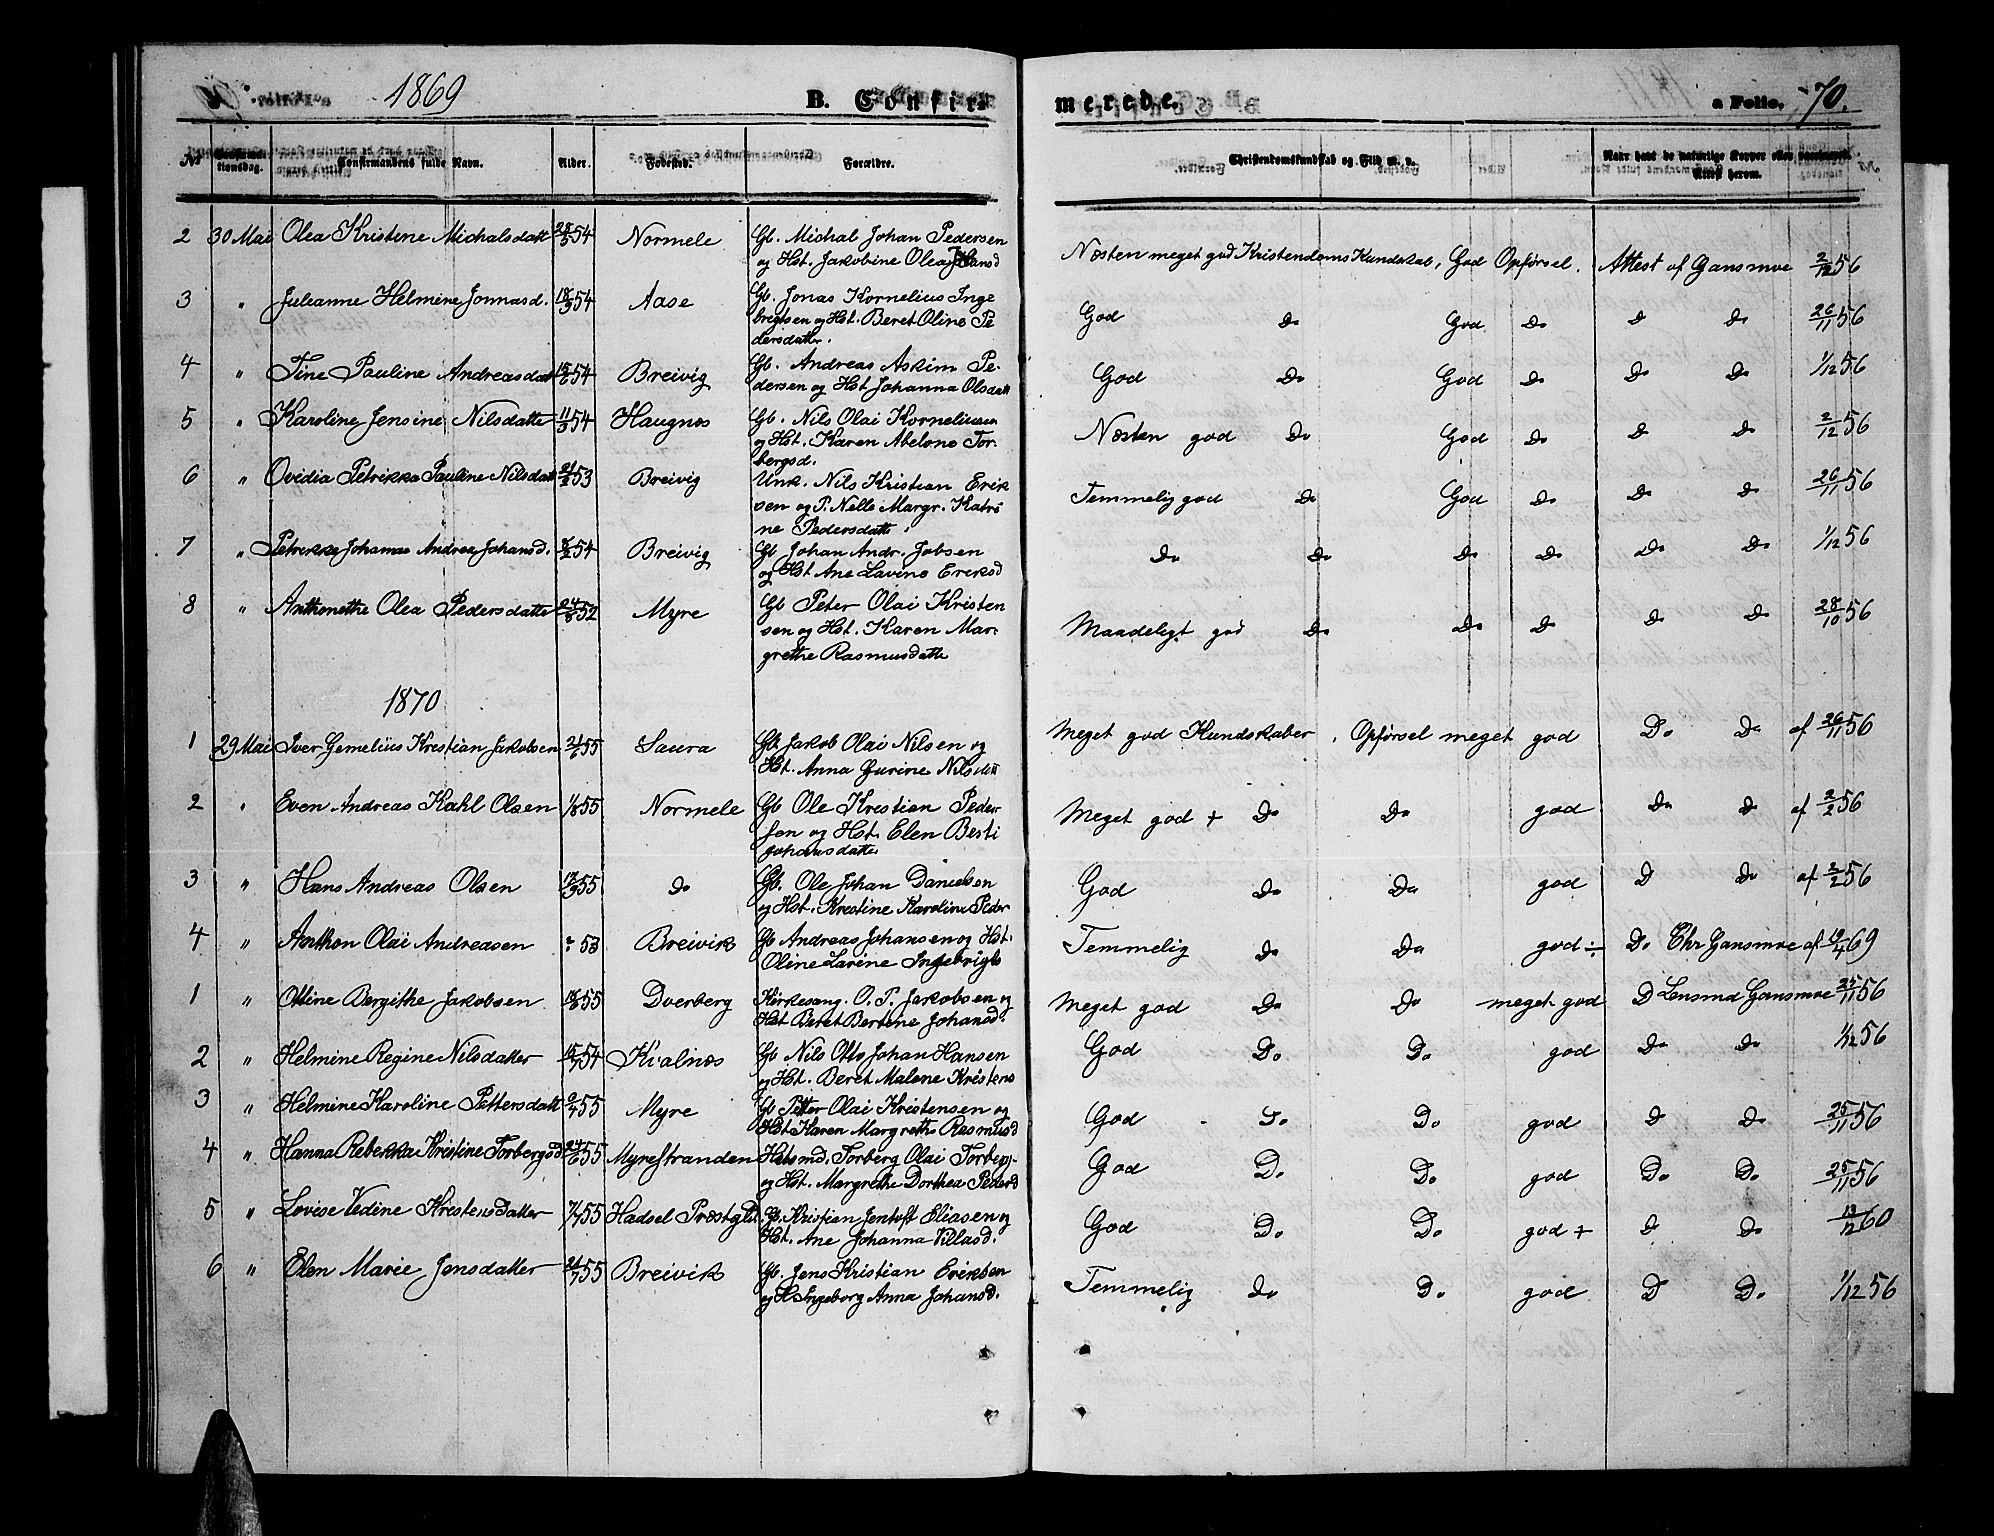 1869
B. Confir-
merede.
a Folio. 70.
No Confirmationsdag. Confirmandens fulde Navn. Alder. Fødested. Forældre. Christendomskundskab og Flid m. v. Naar havt de naturlige Kopper eller vaccineret. Attest herom.
2 30 Mai Olea Kristine Michalsdatt 54 Normele Gb. Michal Johan Pedersen
og Hst. Jakobine Olea Hansd
Næsten meget god Kristendoms Kundskab, God Opførsel. Attest af Gansmoe 2/12 56
3 " Juleanne Helmine Jonnasd. 18/3 54 Aase Gb. Jonas Kornelius Inge
bregtsen og Hst. Beret Oline Pe
dersdatter.
God Do God Do Do Do 26/11 56
4 " Tine Pauline Andreasdatt 54 Breivig Gb. Andreas Askim Pe-
dersen og Hst Johanna Olsdatt
God Do God Do Do Do 1/12 56
5 " Karoline Jensine Nilsdatte 11/3 54 Haugnes Gb. Nils Olai Korneliusen
og Hst. Karen Abelone Tor-
bergsd.
Næsten god Do God Do Do Do 2/12 56
6 " Ovidia Petrikka Pauline Nilsdatt 53 Breivig Unk. Nils Kristian Erik
sen og P. Nelle Margr. Katri
ne Pedersdatte
Temmelig god Do God Do Do Do 26/11 56
7 " Petrikka Johannae Andrea Johansd. 8/2 54 Breivig Gb Johan Andr. Jobsen
og Hst Ane Lavine Eriksd
Do Do Do Do Do Do 1/12 56
8 " Anthonethe Olea Pedersdatte 52 Myre Gb Peter Olai Kristen
sen og Hst. Karen Mar-
grethe Rasmusdatte
Maadeligt god Do Do Do Do Do 28/10 56
1870
1 29 Mai Iver Gemelius Kristian Jakobsen 55 Saura Gb Jakob Olai Nilsen og
Hst. Anna Gurine Nilsdatt
Meget god Kundskaber, Opførsel meget god Do Do af 26/11 56
2 " Even Andreas Kahl Olsen 1/8 55 Normele Gb Ole Kristian Peder
sen og Hst. Elen Berti
Johansdatte
Meget god + Do Do god Do Do af 2/2 56
3 " Hans Andreas Olsen 55 do Gb. Ole Johan Danielsen
og Hst. Kristine Karoline Peder
God Do Do god D Do af 2/2 56
4 " Anthon Olai Andreasen ? 53 Breivik Gb Andreas Johansen og Hst.
Oline Larine Ingebrigts
Temmelig Do Do god ÷ Do Chr Gansmoe af 19/4 69
1 " Ottine Bergithe Jakobsen 55 Dverberg Kirkesang. O. P. Jakobsen og
Hst Beret Bertine Johansd.
Meget god Do Do meget god D Lensmd Gansmoe 25/11 56
2 " Helmine Regine Nilsdatter 54 Kvalnes Gb Nils Otto Johan Hansen
og Hst. Beret Malene Kristens
God Do. Do. god Do Do 1/12 56
3 " Helmine Karoline Pettersdatt 55 Myre Gb Petter Olai Kristensen og
Hst Karen Margrethe Rasmusd
God Do Do god D Do 25/11 56
4 " Hanna Rebekka Kristine Torbergsd 55 Myrestranden Husmd. Torberg Olai Torberg-
og Hst. Margrethe Dorthea Pedersd
God Do. Do. god Do Do. 25/11 56
5 " Lovise Vedine Kristensdatter 55 Hadsel Præstgld. Gb. Kristian Jentoft Eliasen og
Hst. Ane Johanna Villasd.
God Do. Do. god + D Do 13/12 60
6 " Elen Marie Jensdatter 55 Breivik Gb. Jens Kristian Eriksen
og H. Ingeborg Anna Johansd.
Temmelig do Do god D Do. 1/12 56